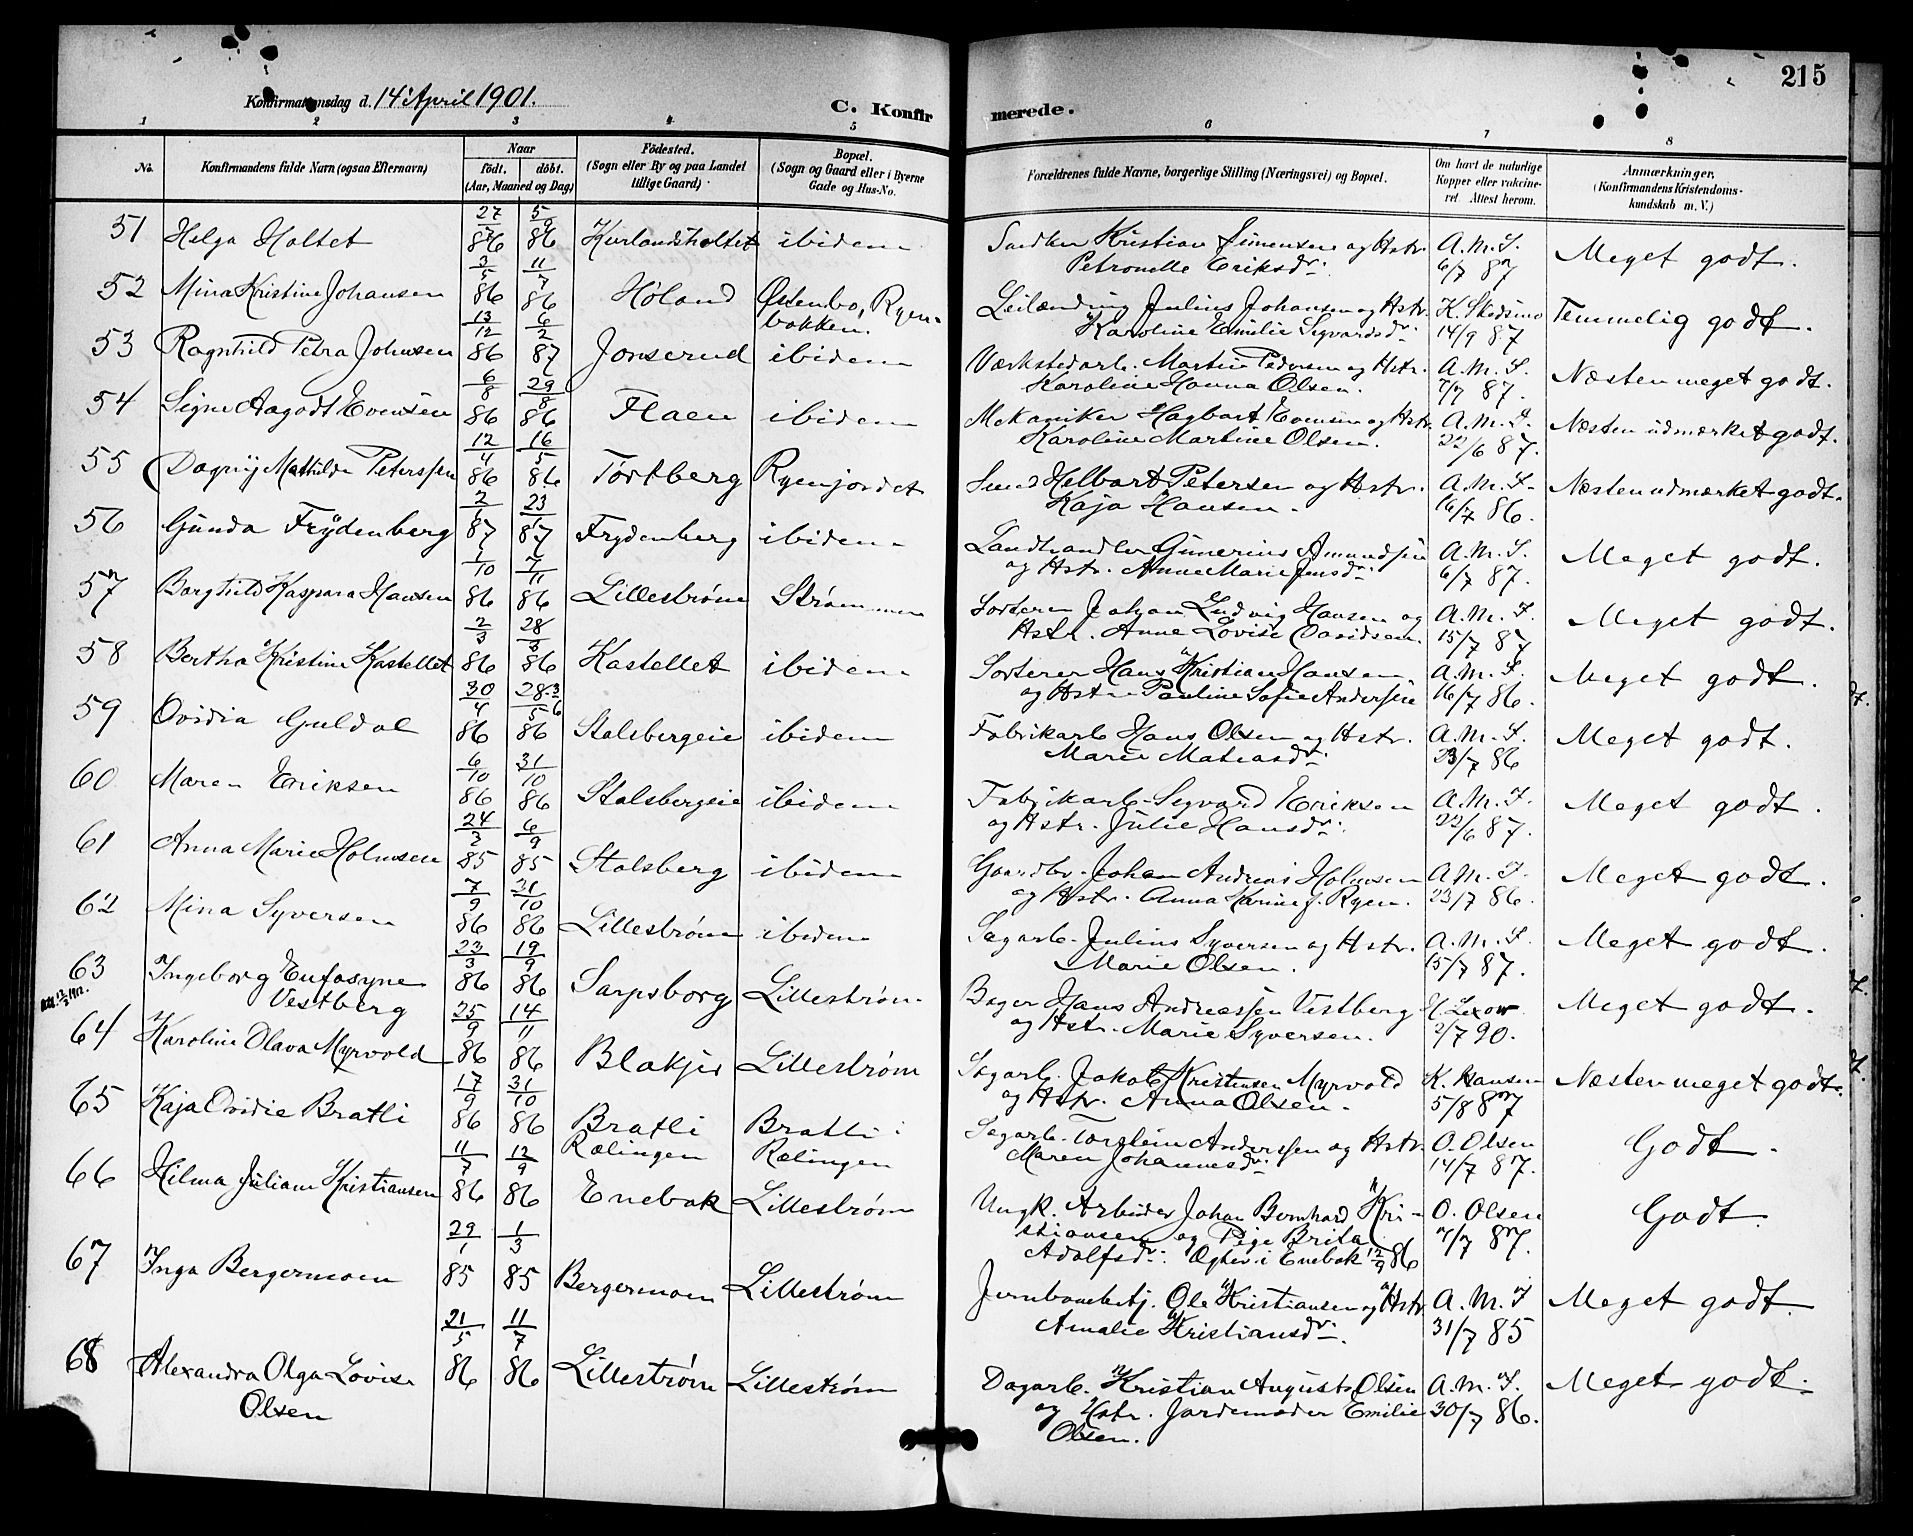 215
Konfirmationsdag d. 14 April 1901.
C. Konfirmerede.
1 2 3 4 5 6 7 8
No.
Konfirmandens fulde Navn (ogsaa Efternavn)
Naar
født. døbt.
(Aar, Maaned og Dag)
Fødested.
(Sogn eller By og paa Landet
tillige Gaard)
Bopæl.
(Sogn og Gaard eller i Byerne
Gade og Hus-No.
Forældrenes fulde Navne, borgerlige Stilling (Næringsvei) og Bopæl.
Om havt de naturlige
Kopper eller vakcine-
ret. Attest herom.
Anmerkninger,
(Konfirmandens Kristendoms-
kundskab m. V.)
51 Helga Holtet 27/7 86 5/9 86 Kurlandsholtet ibidem Kristian Simensen og Hstr. A.M.S. Meget godt.
Petronelle Eriksdr. 6/7 87
52 Mina Kristine Johansen 3/5 86 11/7 86 Høland Østenbo, Ryen- Leilænding Julius Johansen og Hstr. K. Skedsmo Temmelig godt.
bakken. Karoline Emilie Sigvardsdr. 14/9 87
53 Ragnhild Petra Johnsen 13/12 86 6/2 87 Jonserud ibidem Værkstedarb. Martin Pedersen og Hstr. A.M.S. Næsten meget godt.
Karoline Hanna Olsen. 7/7 87.
54 Signe Aagodt Evensen 6/8 86 29/8 86 Flaen ibidem Mekaniker Hagbart Evensen og Hstr. A.M.S. Næsten udmærket godt.
Karoline Martine Olsen. 22/6 87.
55 Dagny Mathilde Peterssen 12/4 86 16/5 86 Tortberg Ryenjordet Smed Helbart Petersen og Hstr. A.M.S. Næsten udmærket godt.
Kaja Hansen. 16/7 86.
56 Gunda Frydenberg 2/1 87 23/1 87 Frydenberg ibidem Landhandler Gunerius Amundsen A.M.S. Meget godt.
og Hstr. Anne Marie Jensdr. 6/7 87.
57 Borghild Kaspara Hansen 1/10 86 7/11 86 Lillestrøm Strømmen Sorterer Johan Ludvig Hansen og A.M.S. Meget godt.
Hstr. Anne Lovise Davidsen. 15/7 87
58 Bertha Kristine Kastellet 2/3 86 28/3 86 Kastellet ibidem Sorterer Hans Kristian Hansen A.M.S. Meget godt.
og Hstr. Pauline Sofie Anderssen 16/7 86.
59 Ovidia Guldal 30/4 86 28/5 86 Stalsbergeie ibidem Fabrikarb. Hans Olsen og Hstr. A.M.S. Meget godt.
Marie Matiasdr. 23/7 86
60 Maren Eriksen 6/10 86 31/10 86 Stalsbergeie ibidem Fabrikarb. Segvard Eriksen A.M.S. Meget godt.
og Hstr. Julie Hansdr. 22/6 87.
61 Anna Marie Holmsen 24/2 85 6/9 85 Stalsberg ibidem Gaardbr. Johan Andreas Holmsen A.M.S. Meget godt.
og Hstr. Anna Karine f. Ryen. 23/7 86.
62 Mina Syversen 7/9 86 31/10 86 Lillestrøm ibidem Sagarb. Julius Syversen og Hstr. A.M.S. Meget godt.
Marie Olsen. 15/7 87.
63 Ingeborg Eufosyne 23/3 86 19/9 86 Sarpsborg Lillestrøm Bager Hans Andreassen Vestberg Lexow Meget godt.
Vestberg og Hstr. Marie Syversen. 2/7 90.
64 Karoline Olava Myrvold 25/9 86 14/11 86 Blakjer Lillestrøm Sagarb. Jakob Kristensen Myrvold K. Hansen Næsten meget godt.
og Hstr. Anna Olsen. 5/8 87
65 Kaja Ovidie Bratli 17/9 86 31/10 86 Bratli Bratli i Sagarb. Torstein Anderssen og Hstr. O. Olsen Godt.
Rælingen Rælingen Maren Johannesdr. 14/7 87.
66 Hilma Juliane Kristiansen 11/7 86 12/9 86 Enebak Lillestrøm Ungk. Arbeider Johan Bernhard Kri- O. Olsen Godt.
stiansen og Pige Brita 7/7 87.
Adolfsdr. Ophev. i Enebak 12/9 86
67 Inga Bergermoen 29/1 85 1/3 85 Bergermoen Lillestrøm Jernbanebetj. Ole Kristiansen og Hstr. A.M.S Meget godt.
Amalie Kristiansdr. 31/7 85
68 Alexandra Olga Lovise 21/5 86 11/7 86 Lillestrøm Lillestrøm Dagarb. Kristian August Olsen A.M.S. Meget godt.
Olsen og Hstr. Jordemoder Emilie 30/7 86.
Olsen.